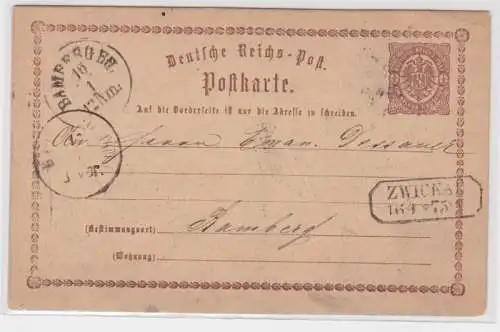 Deutsche Reichs-Post.
Postkarte.
Auf die Vorderseite ist nur die Adresse zu schreiben.
BAMBERG BH.
18
1
An Herrn Eman. Dessauer
ZWICKA
75
Bamberg
(Bestimmungsort)
(Wohnung)